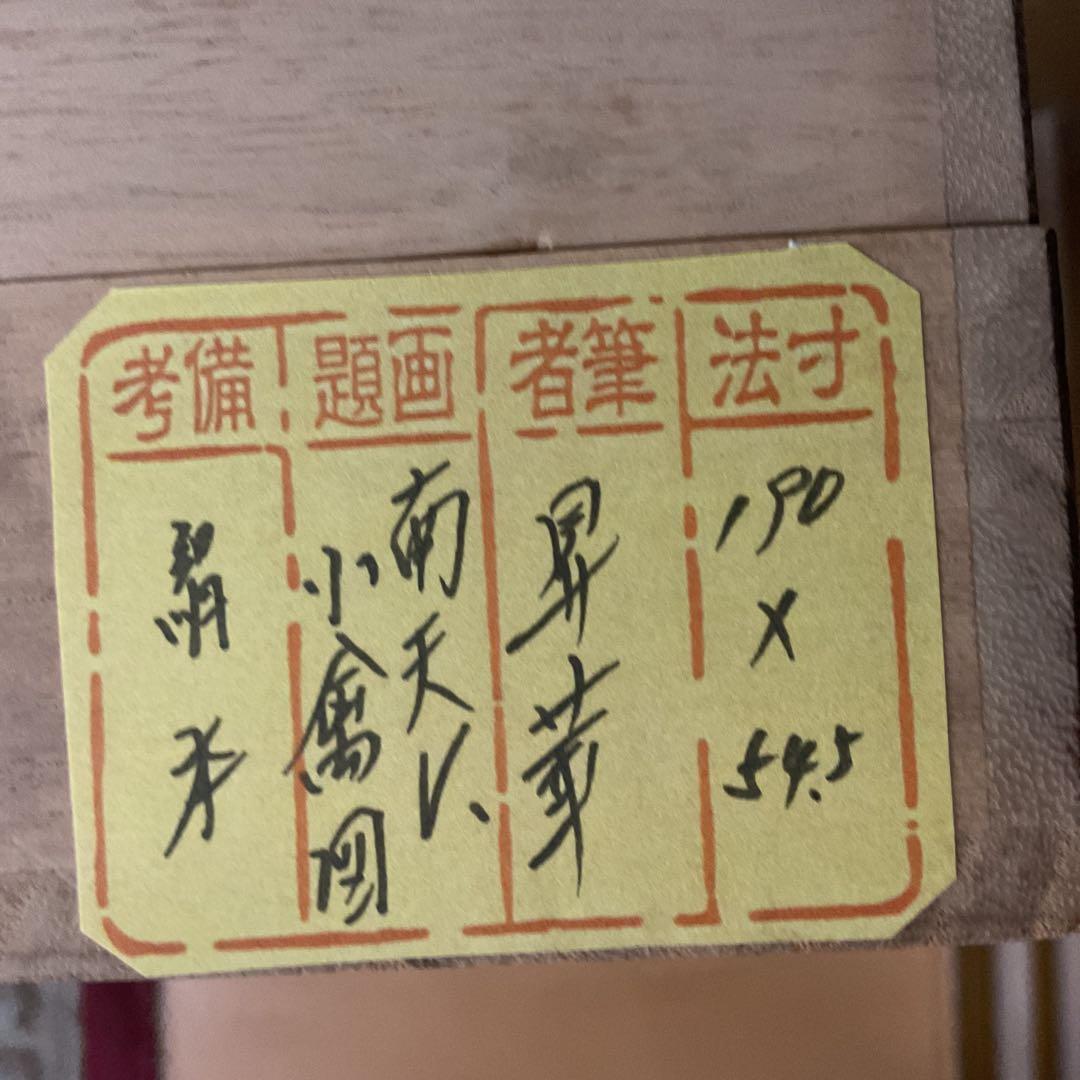 寸法
190
×
54.5
筆者
昇華
画題
南天に
小禽図
備考
絹本